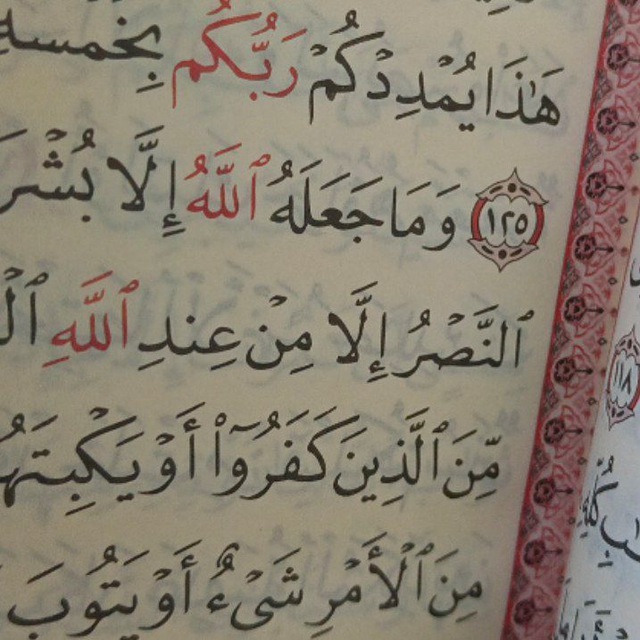 هَٰذَا يُمْدِدْكُمْ رَبُّكُم بِخَمْسَةِ
﴿١٢٥﴾ وَمَا جَعَلَهُ ٱللَّهُ إِلَّا بُشْرَ
ٱلنَّصْرُ إِلَّا مِنْ عِندِ ٱللَّهِ ٱلْ
مِّنَ ٱلَّذِينَ كَفَرُوٓا۟ أَوْ يَكْبِتَهُ
مِنَ ٱلْأَمْرِ شَىْءٌ أَوْ يَتُوبَ
١٨